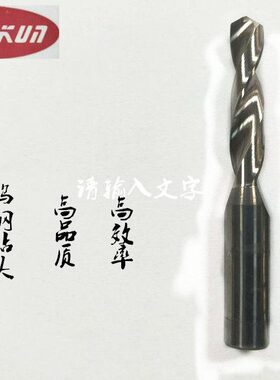 KUN
请输入文字
高效率
高品质
钨钢钻头